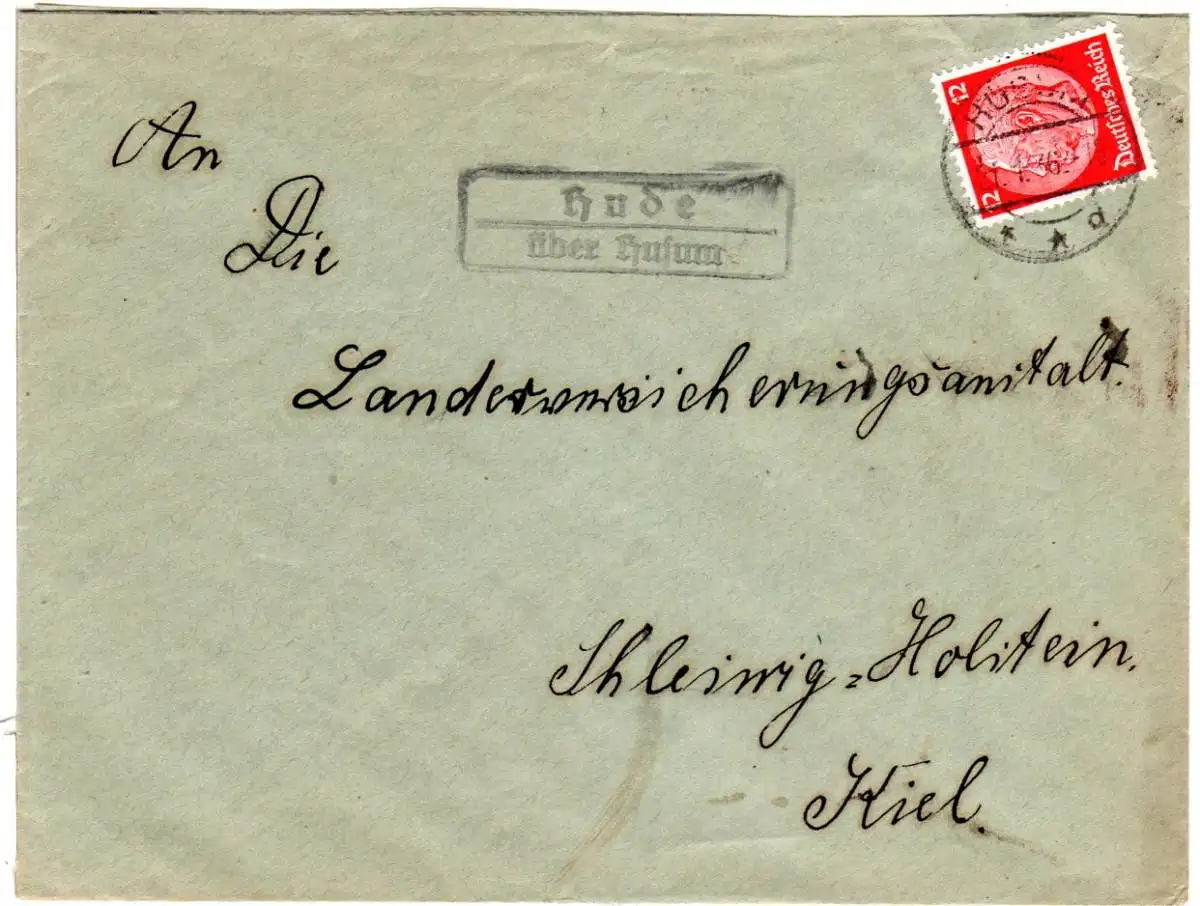 An
Die
Hude
über Husum
12
12
Deutsches Reich
HUSUM
d
Landesversicherungsanstalt.
Schleswig-Holstein.
Kiel.